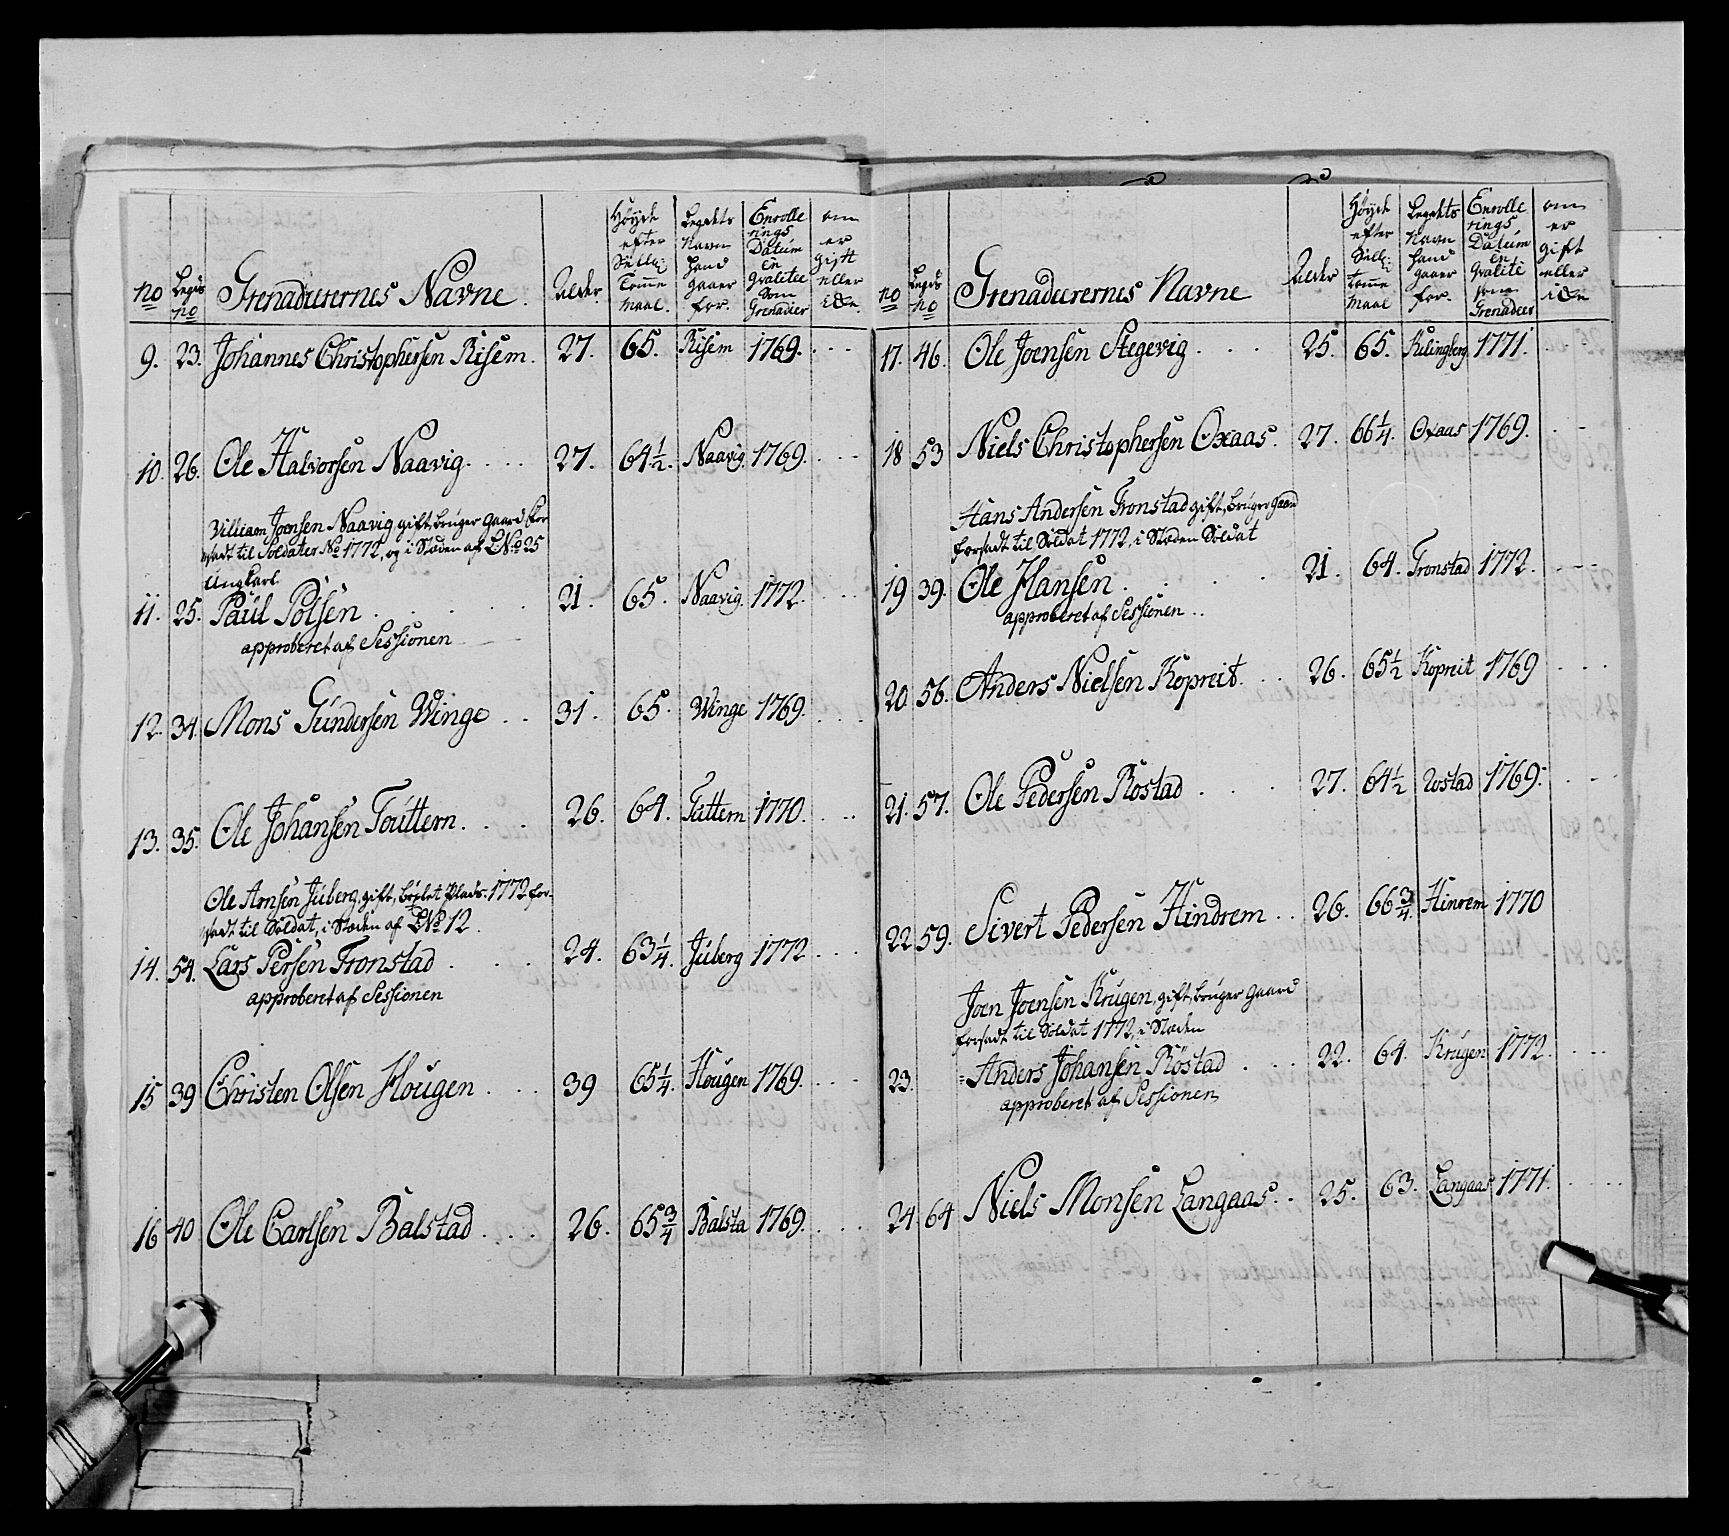 no Legds no Grenaderernes Navne. Alder. Høyde efter Sælla: Tomme Maal. Legdets Navn hand gaaer for. Enrolle rings Datum en Qvalitee Som Grenadier om er gift eller icke.
9. 23. Johannes Christophersen Risem. 27. 65. Risem 1769.
10. 26. Ole Halvorsen Naavig. 27. 64 1/2. Naavig. 1769.
Villiam Joensen Naavig, gift, bruger Gaard for
sadt til Soldater No 1772, og i Stæden af LNo 25
Ungkarl
11. 25. Paul Polsen 21. 65. Naavig. 1772.
approberet af Sessionen
12. 34. Mons Gundersen Winge 31. 65. Winge 1769.
13. 35. Ole Johansen Touttem. 26. 64. Tuttem 1770.
Ole Arnsen Juberg, gift, bøxlet Plads. 1772 for-
sadt til Soldat, i Stæden af LNo 12.
14. 54. Lars Persen Tronstad 24. 63 1/4. Juberg 1772
approberet af Sessionen
15 39 Christen Olsen Hougen 39 65 1/4. Hougen 1769.
16 40 Ole Carlsen Balstad 26. 65 3/4 Balsta 1769.
no Legds no Grenaderernes Navne Alder Høyde efter Sælle: tomme Maal Legdets Navn hand gaaer for. Enrolle rings Datum en Qvalite som Grenadeer om er gift eller icke
17. 46. Ole Joensen Stegevig 25. 65. Kulingberg 1771.
18 53 Niels Christophersen Oxaas. 27. 66 1/4. Oxaas 1769.
Hans Andersen Tronstad gift, bruger Gaard
forsadt til Soldat 1772, i Stæden Soldat
19 39. Ole Hansen 21. 64. Tronstad 1772.
approberet af Sessionen
20. 56. Anders Nielsen Kopreit. 26. 65 1/2 Kopreit 1769
21. 57. Ole Pedersen Rostad 27. 64 1/2 Rostad 1769.
22 59. Sivert Pedersen Hindrem 26. 66 3/4. Hinrem 1770
Joen Joensen Krugen, gift, bruger Gaard
forsadt til Soldat 1772, i Stæden
23. Anders Johansen Röstad 22. 64. Krugen 1772.
approberet af Sessionen
24 64 Niels Monsen Langaas. 25. 63. Langaas 1771.